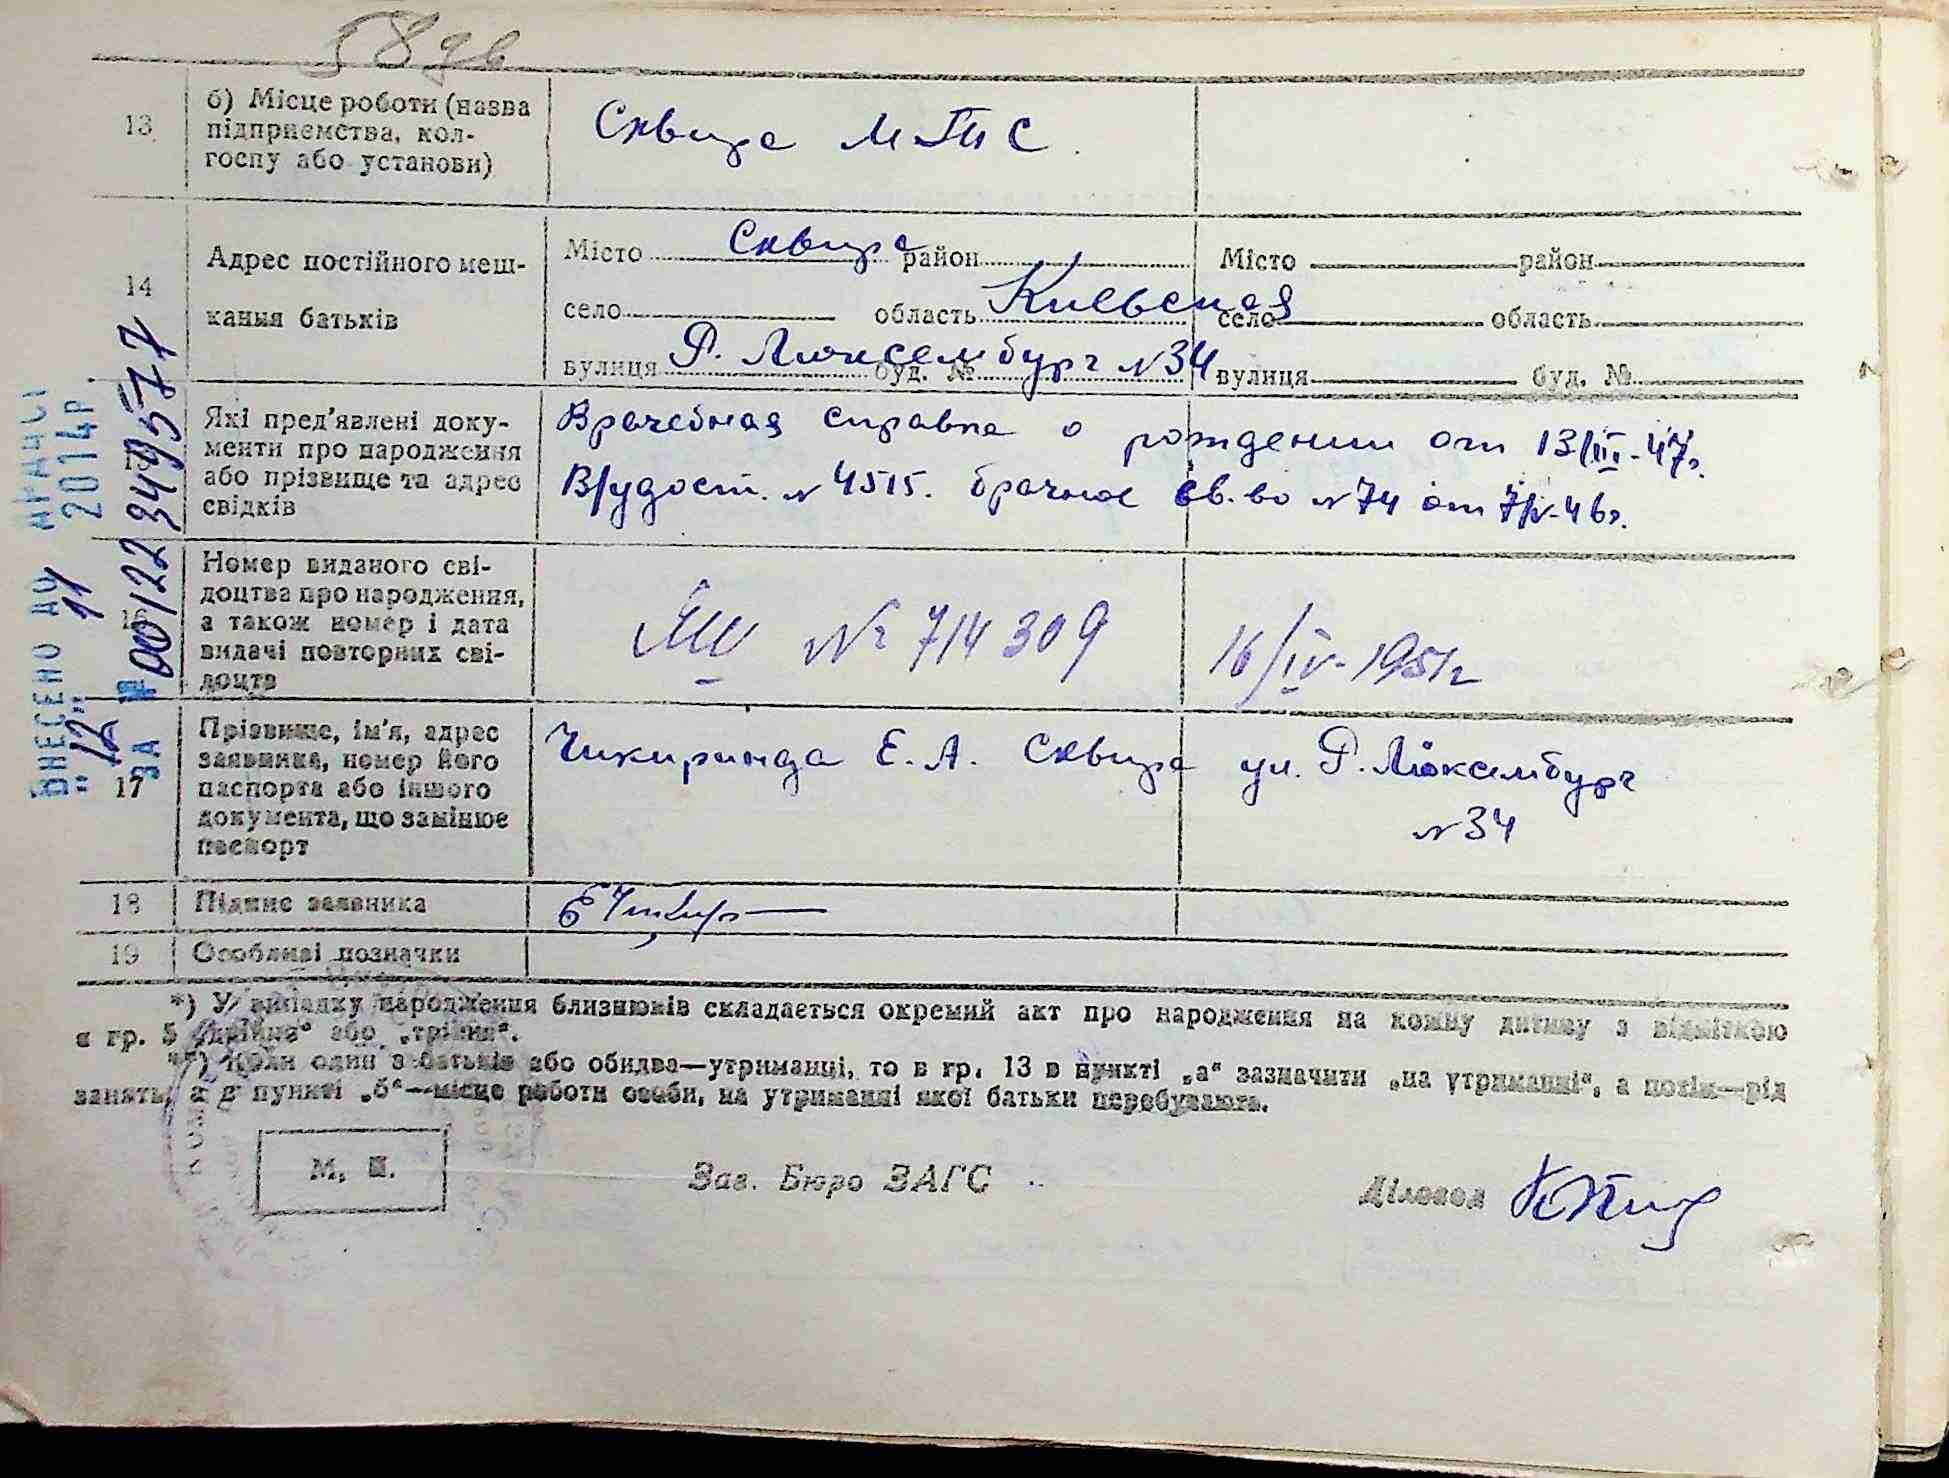 13 б) Місце роботи (назва підприємства, колгоспу або установи) Сквира МТС
14 Адрес постійного мешкання батьків
Місто Сквира район Місто район
село область Киевская село область
вулиця Р. Люксембург буд. № №34 вулиця буд. №
Які пред'явлені доку-
менти про народження
або прізвище та адрес
свідків
Врачебная справка о рождении от 13/III-47г.
В/удост. №4515. брачное св-во №74 от 7/V-46г.
16 Номер виданого сві-
доцтва про народження,
а також номер і дата
видачі повторних сві-
доцтв
№ 714309 16/IV-1951г
17 Прізвище, ім'я, адрес
заявника, номер його
паспорта або іншого
документа, що замінює
паспорт
Чикиринда Е. А. Сквира ул. Р. Люксембург
№34
18 Підпис заявника
19 Особливі позначки
*) У випадку народження близнюків складається окремий акт про народження на кожну дитину з відміткою
в гр. 5 „двійня“ або „трійня“.
**) Коли один з батьків або обидва—утриманці, то в гр. 13 в пункті „а“ зазначити „на утриманні“, а потім—рід
занять, а в пункті „б“—місце роботи особи, на утриманні якої батьки перебувають.
М. П. Зав. Бюро ЗАГС Діловод
ВНЕСЕНО ДО ДРАЦСГ
"12" 11 2014р
ЗА № 00122349577